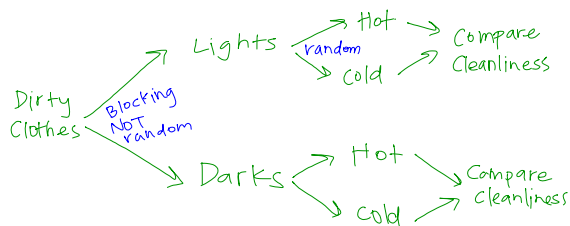 Dirty
Clothes
Blocking
NOT
random
Lights
random
Hot
Cold
Compare
Cleanliness
Darks
Hot
Cold
Compare
Cleanliness